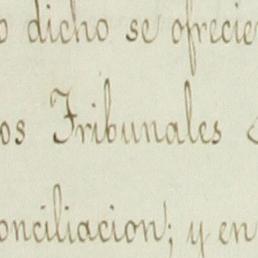 o dicho se ofrecie
os Tribunales
onciliacion; y en